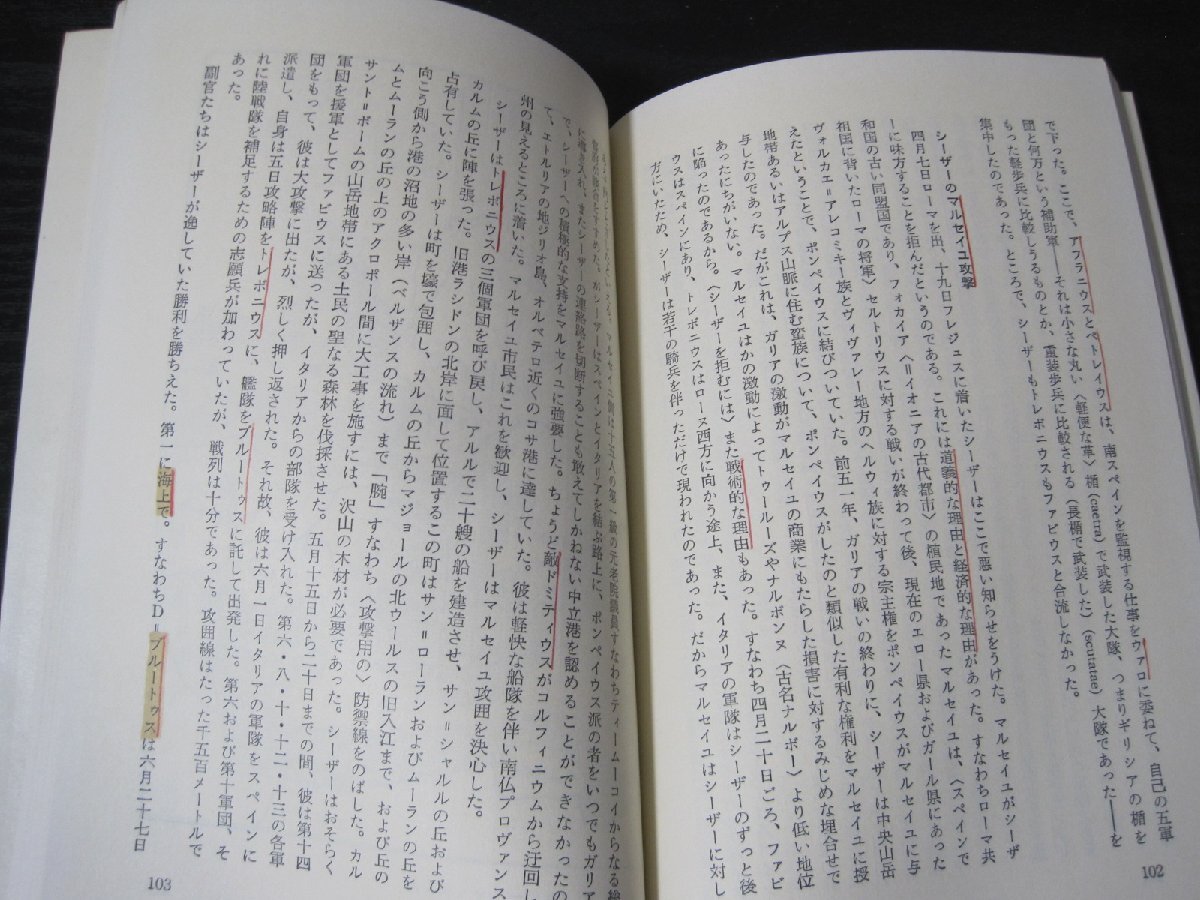 で下った。ここで、アフラニウスとペトレイウスは、南スペインを監視する仕事をヴァロに委ねて、自己の五軍
団と何万という補助軍――それは小さな丸い〈軽便な革〉楯(caetra)で武装した大隊、つまりギリシアの楯を
もった軽歩兵に比較しうるものとか、重装歩兵に比較される(長楯で武装した)(scutatae)大隊であった――を
集中したのであった。ところで、シーザーもトレボニウスもファビウスと合流しなかった。
シーザーのマルセイユ攻撃
四月七日ローマを出、十九日フレジュスに着いたシーザーはここで悪い知らせをうけた。マルセイユがシーザ
ーに味方することを拒んだというのである。これには道義的な理由と経済的な理由があった。すなわちローマ共
和国の古い同盟国であり、フォカイア〈=イオニアの古代都市〉の殖民地であったマルセイユは、〈スペインで
祖国に背いたローマの将軍〉セルトリウスに対する戦いが終わって後、現在のエロー県およびガール県にあった
ヴォルカエ=アレコミキー族とヴィヴァレー地方のヘルウィ族に対する宗主権をポンペイウスがマルセイユに与
えたということで、ポンペイウスに結びついていた。前五一年、ガリアの戦いの終わりに、シーザーは中央山岳
地帯あるいはアルプス山脈に住む蛮族について、ポンペイウスがしたのと類似した有利な権利をマルセイユに授
与したのであった。だがこれは、ガリアの激動がマルセイユの商業にもたらした損害に対するみじめな埋合せで
あったにちがいない。マルセイユはかの激動によってトゥールーズやナルボンヌ〈古名ナルボー〉より低い地位
に陥ったのであるから。〈シーザーを拒むには〉また戦術的な理由もあった。すなわち四月二十日ごろ、ファビ
ウスはスペインにあり、トレボニウスはローヌ西方に向かう途上、また、イタリアの軍隊はシーザーのずっと後
方にいたため、シーザーは若干の騎兵を伴っただけで現われたのであった。だからマルセイユはシーザーに対し
102
マルセイユ側は十五人の第一級の元老院議員すなわちティームーコイからなる
シーザーはスペインとイタリアを結ぶ路上に、ポンペイウス派の者をいつでもガリア
に導き入れ、またシーザーの連絡路を切断することも敢えてしかねない中立港を認めることができなかったの
で、シーザーへの積極的な支持をマルセイユに強要した。ちょうど敵ドミティウスがコルフィニウムから迂回し
て、エトルリアの地ジリオ島、オルベテロ近くのコサ港に達していた。彼は軽快な船隊を伴い南仏プロヴァンス
州の見えるところに着いた。マルセイユ市民はこれを歓迎し、シーザーはマルセイユ攻囲を決心した。
シーザーはトレボニウスの三個軍団を呼び戻し、アルルで二十艘の船を建造させ、サン=シャルルの丘および
カルムの丘に陣を張った。旧港ラシドンの北岸に面して位置するこの町はサン=ローランおよびムーランの丘を
占有していた。シーザーは町を壕で包囲し、カルムの丘からマジョールの北ウールスの旧入江まで、および丘の
向こう側から港の沼地の多い岸(ベルザンスの流れ)まで「腕」すなわち〈攻撃用の〉防禦線をのばした。カル
ムとムーランの丘の上のアクロポール間に大工事を施すには、沢山の木材が必要であった。シーザーはおそらく
サント=ボームの山岳地帯にある土民の聖なる森林を伐採させた。五月十五日から二十日までの間、彼は第十四
軍団を援軍としてファビウスに送ったが、イタリアからの部隊を受け入れた。第六・八・十・十二・十三の各軍
団をもって、彼は大攻撃に出たが、烈しく押し返された。それ故、彼は六月一日イタリアの軍隊をスペインに
派遣し、自身は五日攻略陣をトレボニウスに、艦隊をブルートゥスに託して出発した。第六および第十軍団、そ
れに陸戦隊を補足するための志願兵が加わっていたが、戦列は十分であった。攻囲線はたった千五百メートルで
あった。
副官たちはシーザーが逸していた勝利を勝ちえた。第一に海上で。すなわちD=ブルートゥスは六月二十七日
103